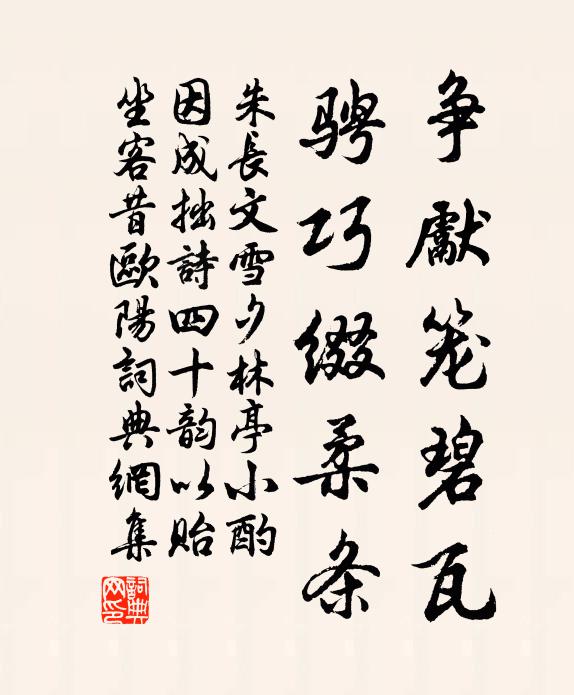 争獻笼碧瓦
骋巧缀柔条
朱長文雪夕林亭小酌
因成拙詩四十韵以貽
坐客昔歐陽詞典網集
詞典
网印